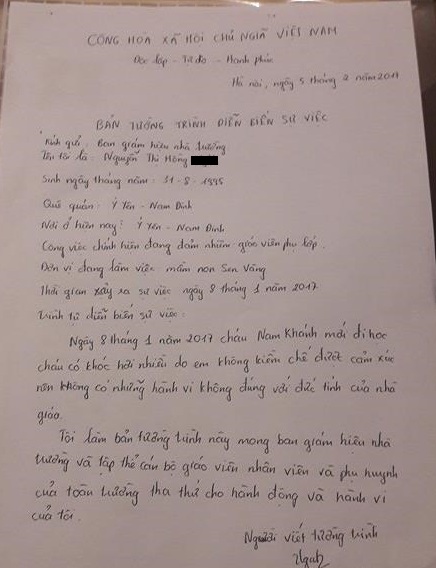 CỘNG HÒA XÃ HỘI CHỦ NGHĨA VIỆT NAM
Độc lập - Tự do - Hạnh phúc
Hà nội, ngày 5 tháng 2 năm 2017
BẢN TƯỜNG TRÌNH DIỄN BIẾN SỰ VIỆC
Kính gửi: Ban giám hiệu nhà trường
Tên tôi là: Nguyễn Thị Hồng
Sinh ngày tháng năm: 31-8-1995
Quê quán: Ý Yên - Nam Định
Nơi ở hiện nay: Ý Yên - Nam Định
Công việc chính hiện đang đảm nhiệm: giáo viên phụ lớp.
Đơn vị đang làm việc mầm non Sen Vàng
Thời gian xảy ra sự việc ngày 8 tháng 1 năm 2017
Trình tự diễn biến sự việc:
Ngày 8 tháng 1 năm 2017 cháu Nam Khánh mới đi học
cháu có khóc hơi nhiều do em không kiềm chế được cảm xúc
nên không có những hành vi không đúng với đức tính của nhà
giáo.
Tôi làm bản tường trình này mong ban giám hiệu nhà
trường và tập thể cán bộ giáo viên nhân viên và phụ huynh
của toàn trường tha thứ cho hành động và hành vi
của tôi.
Người viết tường trình